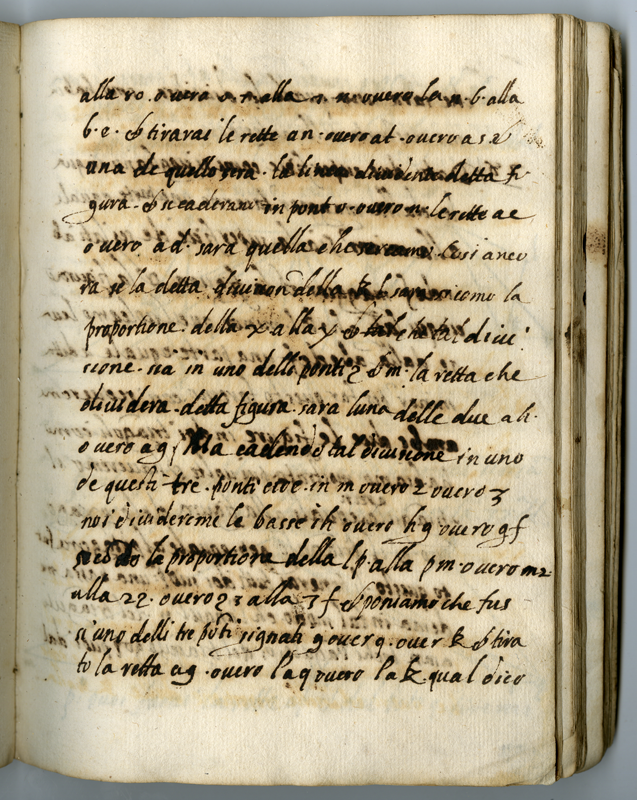 alla ro. overa a r alla r n. overo la n. b. alla
b. e. & tirarai le rette an. overo at. overo as 2
una de quelle sera. la linea dividente detta fi
gura. & se caderano in pont o. overo n. le rette ae
overo ad. sara quella che Cosi anco
ra se la detta divition della k b como la
proportione della x alla y & tal che tal divi
sione. sia in uno delli ponti 2 & m. la retta che
dividera. detta figura. sara luna delle due ah.
overo ag. Ma cadendo tal divisione in uno
de questi tre. ponti cioe. in m overo 2 overo 3
noi divideremo le basse ih overo hg overo gf
secōdo la proportione della lp. alla pm. overo m2
alla 22. overo 2 3 alla 3 f & poniamo che fus
si uno delli tre pōti signati g over q. over k & tira
to la retta ag. overo l'aq overo l'ak. qual dico